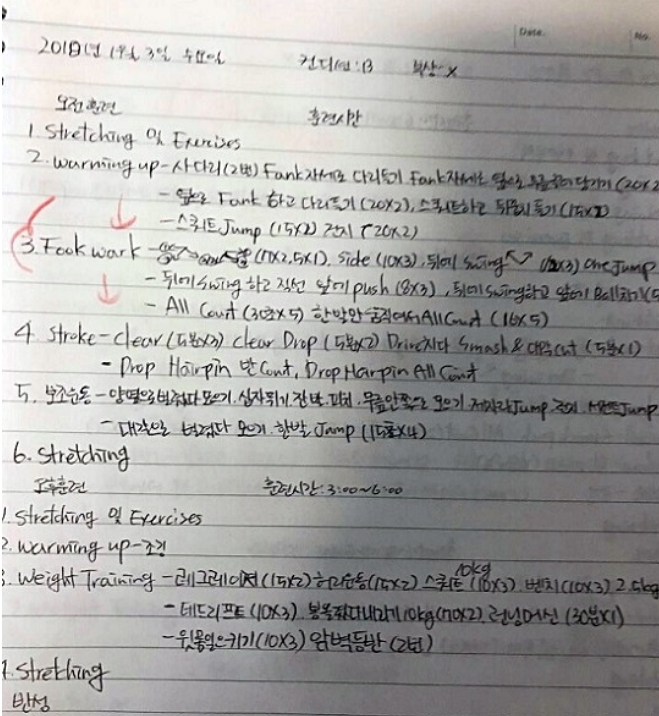 Date. No.
2018년 1월 3일 수요일 컨디션:B 부상:X
오전훈련 훈련시간
1. Stretching 및 Exercises
2. Warming up - 사다리(2번) Fank자세로 다리들기 Fank자세로 앞으로 당기기 (20x2
- 옆으로 Fank 하고 다리들기 (20x2), 스쿼트하고 뒤꿈치들기 (15x2)
- 스쿼트 Jump (15x2) 전지 (20x2)
3. Fook wark - (10x2, 5x1). Side (10x3), 뒤에 Swing (10x3) One Jump
- 뒤에 Swing 하고 직선 앞에 push (8x3), 뒤에 Swing하고 앞에 (5
- All Cout (30초x5) 한박만 움직여서 All Cout (16x5)
4. Stroke - clear (5분x3) clear Drop (5분x2) Drive치다 Smash & 대각 cut (5분x1)
- Drop Hairpin 반Cout, Drop Hairpin All Cout
5. 보조운동 - 양옆으로 벌렸다 모으기. 십자뛰기. 잔발. 무릎안쪽으로 모으기 제자리Jump Jump
- 대각으로 벌렸다 모으기. 한발 Jump (15초x4)
6. Stretching
오후훈련 훈련시간: 3:00~6:00
1. Stretching 및 Exercises
2. Warming up - 조깅
3. Weight Training - 레그레이져 (15x2) 허리운동(15x2) 스쿼트 10kg (10x3). 벤치(10x3) 2.5kg
- 데드리프트 (10x3). 봉올렸다내리기 10kg (70x2). 런닝머신 (30분x1)
- 윗몸일으키기 (10x3) 암벽등반 (2번)
4. Strething
반성